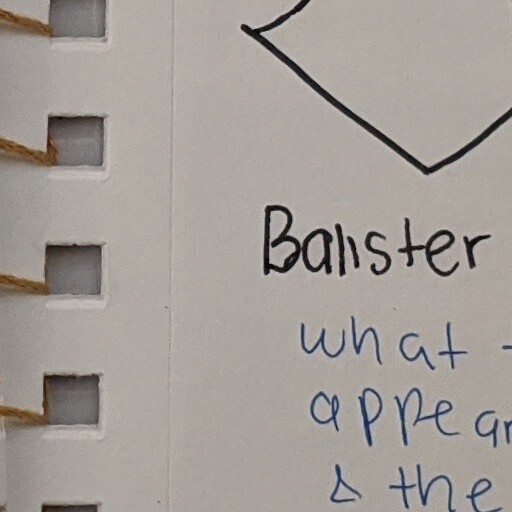 Balister
what -
appear
& the